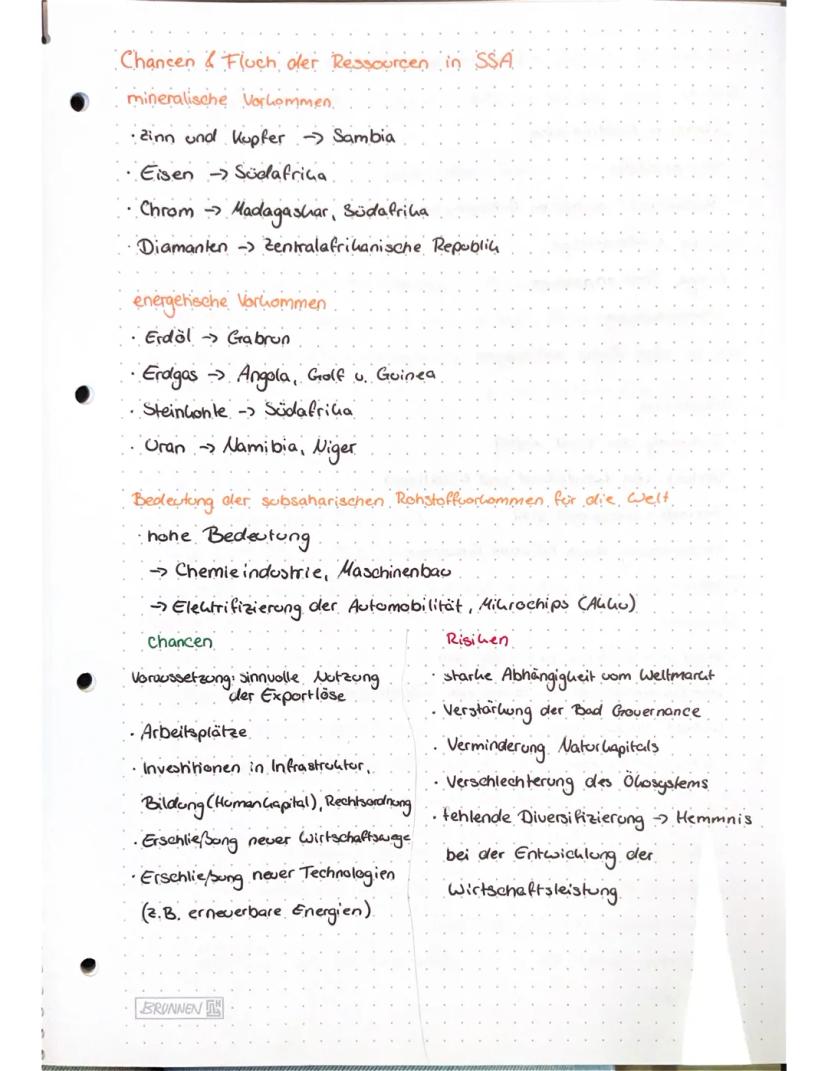 Chancen & Fluch der Ressourcen in SSA
mineralische Vorkommen
· Zinn und Kupfer → Sambia
· Eisen → Südafrika
· Chrom → Madagaskar, Südafrika
· Diamanten → Zentralafrikanische Republik
energetische Vorkommen
· Erdöl → Gabrun
· Erdgas → Angola, Golf u. Guinea
· Steinkohle → Südafrika
· Uran → Namibia, Niger
Bedeutung der subsaharischen Rohstoffvorkommen für die Welt
· hohe Bedeutung
→ Chemieindustrie, Maschinenbau
→ Elektrifizierung der Automobilität, Mikrochips (Akku)
Chancen
Voraussetzung: sinnvolle Nutzung
der Exportlöse
· Arbeitsplätze
· Investitionen in Infrastruktur,
Bildung (Humankapital), Rechtsordnung
· Erschließung neuer Wirtschaftswege
· Erschließung neuer Technologien
(z.B. erneuerbare Energien)
Risiken
· starke Abhängigkeit vom Weltmarkt
· Verstärkung der Bad Governance
· Verminderung Naturkapitals
· Verschlechterung des Ökosystems
· fehlende Diversifizierung → Hemmnis
bei der Entwicklung der
Wirtschaftsleistung
BRUNNEN